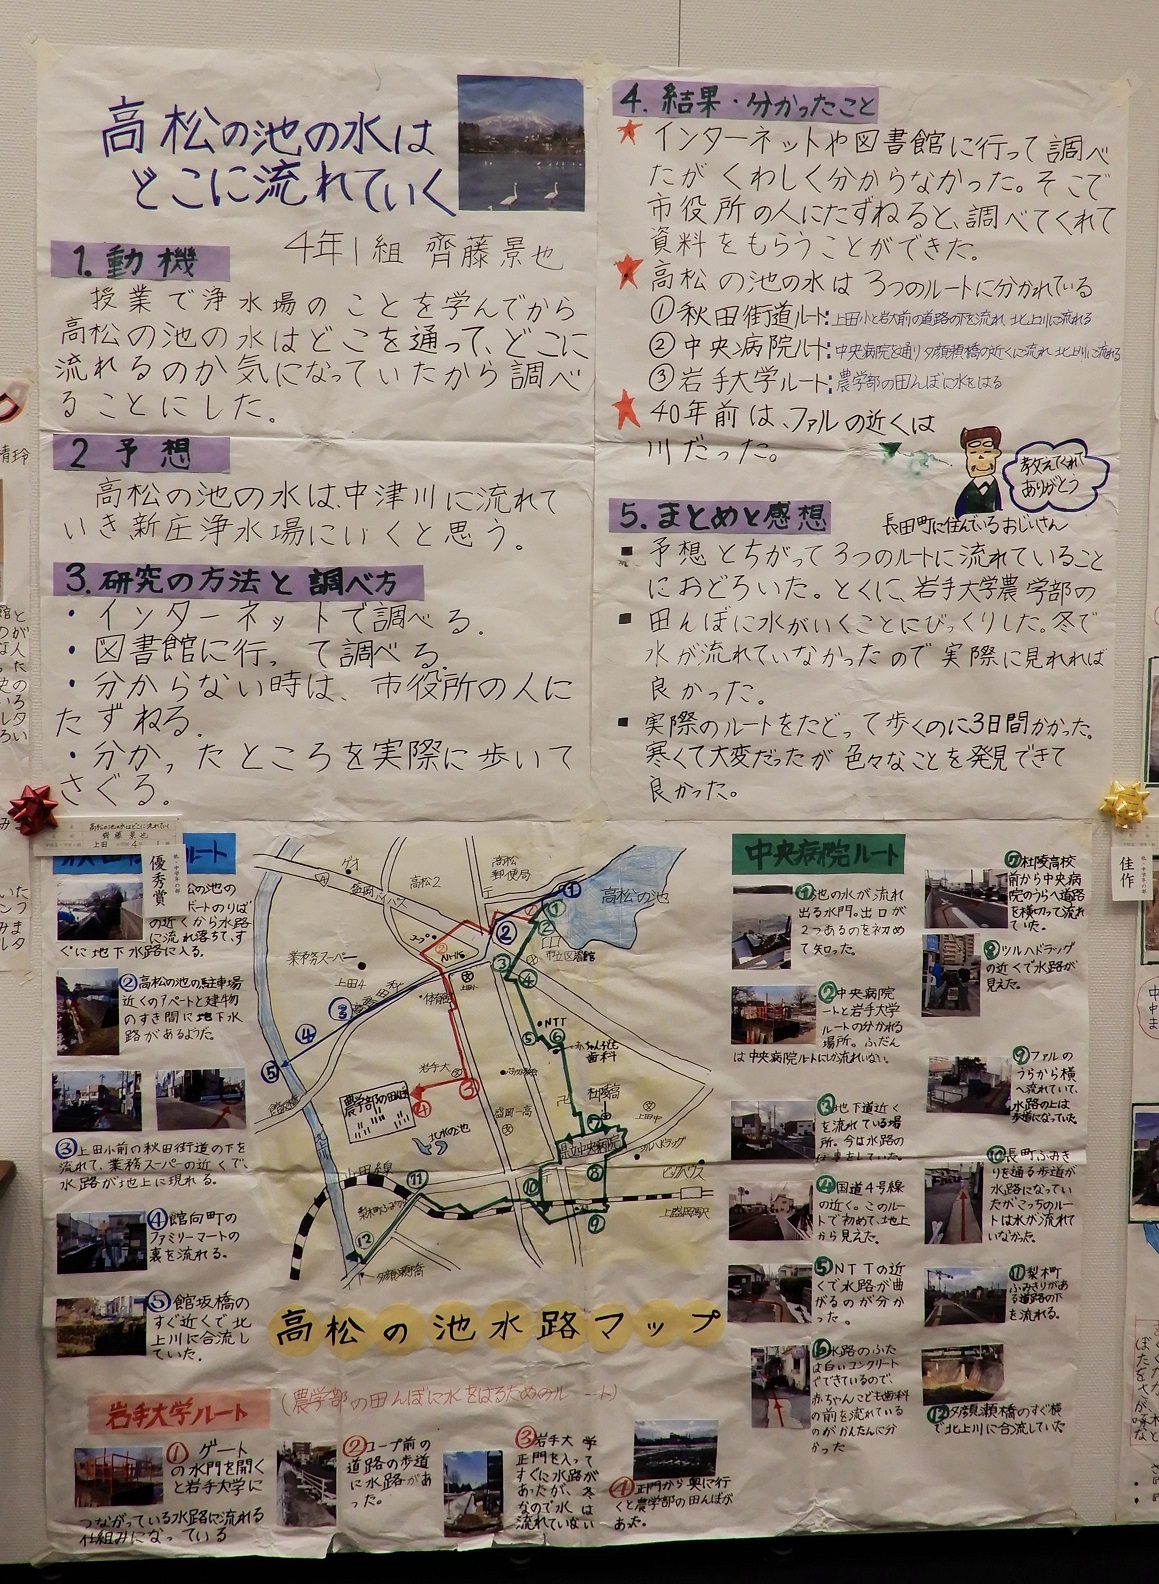 高松の池の水は
どこに流れていく
4年1組 齊藤景也
1.動機
授業で浄水場のことを学んでから
高松の池の水はどこを通って、どこに
流れるのか気になっていたから調べ
ることにした。
2 予想
高松の池の水は、中津川に流れて
いき新庄浄水場にいくと思う。
3.研究の方法と調べ方
・インターネットで調べる。
・図書館に行って調べる。
・分からない時は、市役所の人に
たずねる。
・分かったところを実際に歩いて
さぐる。
4.結果・分かったこと
★インターネットや図書館に行って調べ
たがくわしく分からなかった。そこで
市役所の人にたずねると、調べてくれて
資料をもらうことができた。
★高松の池の水は3つのルートに分かれている
①秋田街道ルート:上田小と岩大前の道路の下を流れ、北上川に流れる
②中央病院ルート:中央病院を通り夕顔瀬橋の近くに流れ、北上川に流れる
③岩手大学ルート:農学部の田んぼに水をはる
★40年前は、ファルの近くは
川だった。
教えてくれて
ありがとう
長田町に住んでいるおじいさん
5.まとめと感想
■予想とちがって3つのルートに流れていること
におどろいた。とくに、岩手大学農学部の
■田んぼに水がいくことにびっくりした。冬で
水が流れていなかったので実際に見れれば
良かった。
■実際のルートをたどって歩くのに3日間かかった。
寒くて大変だったが色々なことを発見できて
良かった。
高松の池の水はどこに流れていく
齊藤景也
上田 4 1
優秀賞
佳作
ルート
池の
ボートのりば
の近くから水路
に流れ落ちて、す
ぐに地下水路に入る。
②高松の池の駐車場
近くのアパートと建物
のすき間に地下水
路があるようだ。
③上田小前の秋田街道の下を
流れて、業務スーパーの近くで、
水路が地上に現れる。
④館向町の
ファミリーマートの
裏を流れる。
⑤館坂橋の
すぐ近くで北
上川に合流し
ていた。
高松2
高松
郵便局
高松の池
①
②
業務スーパー
上田4
NHK
上田小
体育館
市立図書館
③
④
⑤
NTT
赤ちゃんこども
歯科
岩手大
農学部の田んぼ
北水の池
盛岡一高
杜陵高
上田中
県立中央病院
ツルハドラッグ
上田線
⑨
⑩
⑪
⑫
上盛岡駅
夕顔瀬橋
高松の池水路マップ
中央病院ルート
①池の水が流れ
出る水門。出口が
2つあるのを初め
て知った。
②中央病院
ートと岩手大学
ルートの分かれる
場所。ふだん
は中央病院ルートにしか流れいない。
③地下道近く
を流れている場
所。今は水路の
④国道4号線
の近く。このルー
トで初めて、地上
から見えた。
⑤NTTの近
くで水路が曲
がるのが分か
った。
⑥水路のふた
は白いコンクリート
でできているので、
赤ちゃんこども歯科
の前を流れている
のがかんたんに分
かった
⑦杜陵高校
前から中央病
院のうらへ道路
を横切って流れ
ていた。
⑧ツルハドラッグ
の近くで水路が
見えた。
⑨ファルの
うらから横
へ流れていて、
水路の上は
歩道になっていた
⑩長町ふみき
りを通る歩道が
水路になってい
たがこっちのルー
トは水が流れて
いなかった。
⑪梨木町
ふみきりがあ
る道路の下
を流れる。
⑫夕顔瀬橋のすぐ横
で北上川に合流していた
岩手大学ルート
(農学部の田んぼに水をはるためのルート)
①ゲート
の水門を開く
と岩手大学に
つながっている水路に流れる
仕組みになっている
②コープ前の
道路の歩道
に水路があ
った。
③岩手大学
正門を入って
すぐに水路が
あったが、冬
なので水は
流れていない
④正門から奥に行
くと農学部の田んぼが
あった。